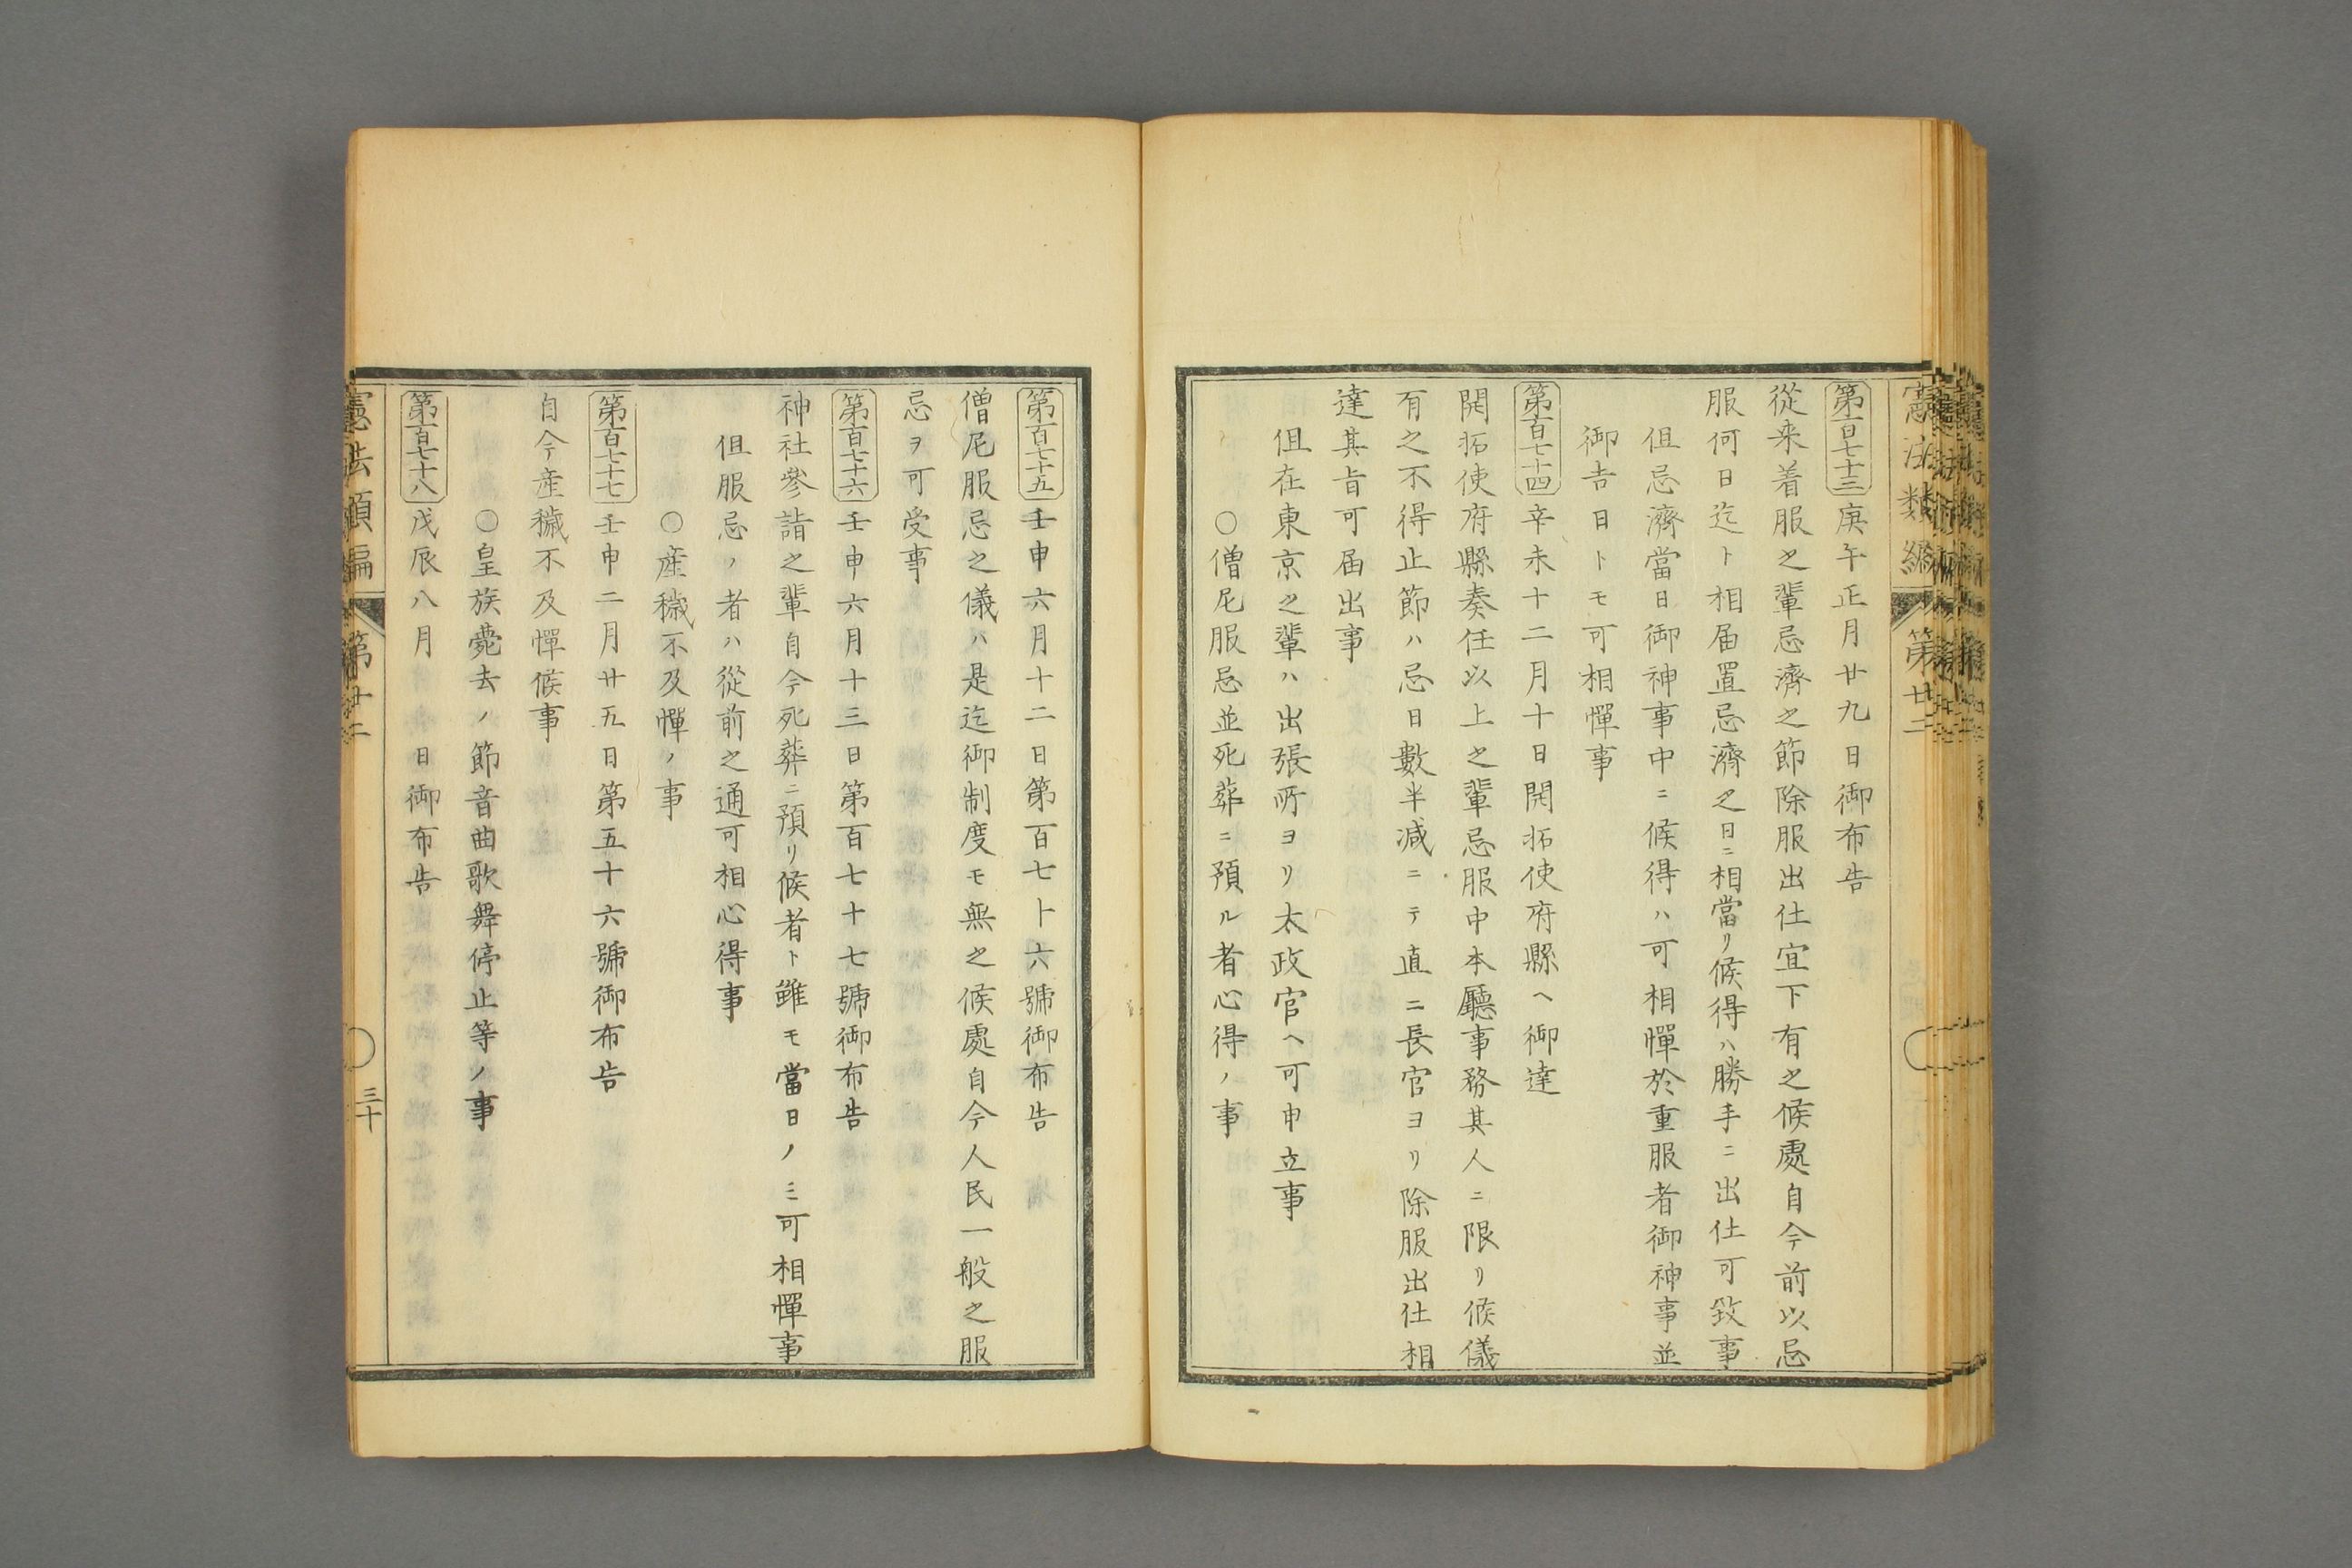 憲法類編
第廿二
第百七十三 庚午正月廿九日御布告
從来着服之輩忌濟之節除服出仕宜下有之候處自今前以忌
服何日迄ト相届置忌濟之日ニ相當リ候得ハ勝手ニ出仕可致事
但忌濟當日御神事中ニ候得ハ可相憚於重服者御神事並
御吉日トモ可相憚事
第百七十四 辛未十二月十日開拓使府縣ヘ御達
開拓使府縣奏任以上之輩忌服中本廳事務其人ニ限リ候儀
有之不得止節ハ忌日數半減ニテ直ニ長官ヨリ除服出仕相
達其旨可届出事
但在東京之輩ハ出張所ヨリ太政官ヘ可申立事
〇僧尼服忌並死葬ニ預ル者心得ノ事
第百七十五 壬申六月十二日第百七十六號御布告
僧尼服忌之儀ハ是迄御制度モ無之候處自今人民一般之服
忌ヲ可受事
第百七十六 壬申六月十三日第百七十七號御布告
神社參詣之輩自今死葬ニ預リ候者ト雖モ當日ノミ可相憚事
但服忌ノ者ハ從前之通可相心得事
〇産穢不及憚ノ事
第百七十七 壬申二月廿五日第五十六號御布告
自今産穢不及憚候事
〇皇族薨去ノ節音曲歌舞停止等ノ事
第百七十八 戊辰八月 日御布告
憲法類編
第廿二
三十